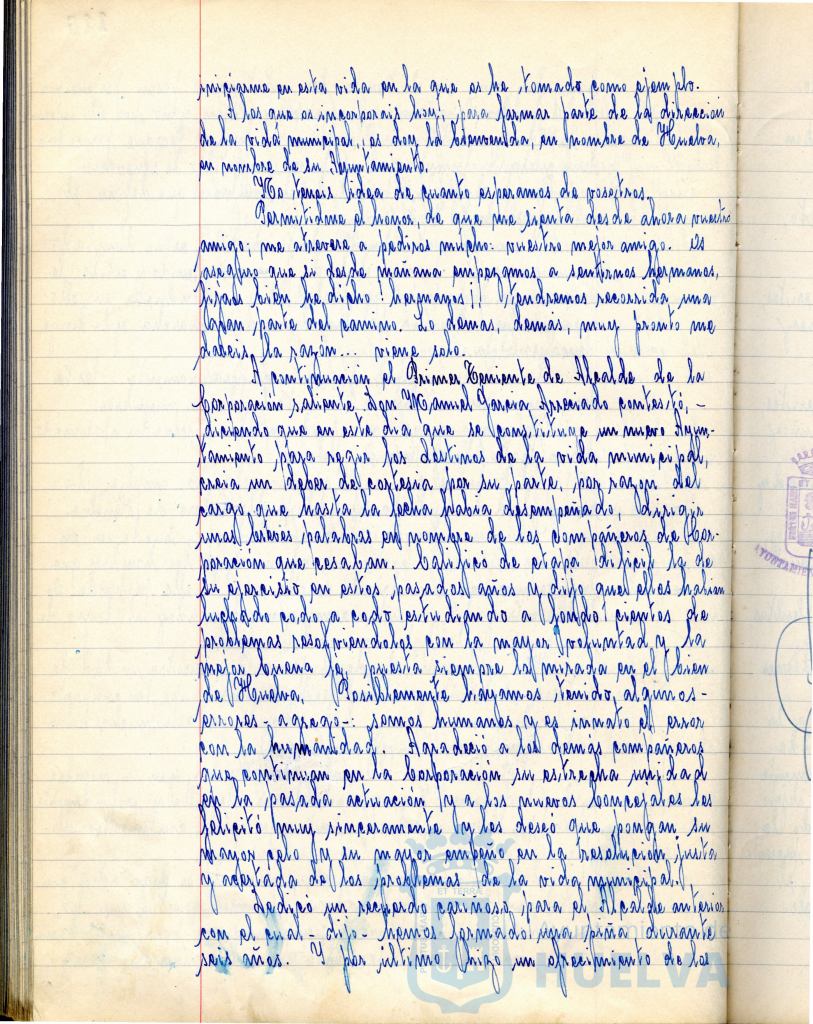 iniciarme en esta vida en la que os he tomado como ejemplo.
A los que os incorporais hoy, para formar parte de la direccion
de la vida municipal, os doy la bienvenida, en nombre de Huelva,
en nombre de su Ayuntamiento.
No teneis idea de cuanto esperamos de vosotros.
Permitidme el honor, de que me sienta desde ahora vuestro
amigo; me atrevere a pediros mucho: vuestro mejor amigo. Os
aseguro que si desde mañana empezamos a sentirnos hermanos,
fijaos bién he dicho ¡hermanos!! tendremos recorrida una
gran parte del camino. Lo demas, demás, muy pronto me
dareis la razón... viene solo.
A continuación el Primer Teniente de Alcalde de la
Corporación saliente Don Manuel Garcia Apreciado contestó, -
diciendo que en este dia que se constituye un nuevo Ayun-
tamiento para regir los destinos de la vida municipal,
creia un deber de cortesia por su parte, por razon del
cargo que hasta la fecha habia desempeñado, dirigir
unas breves palabras en nombre de los compañeros de Cor-
poración que cesaban. Calificó de etapa dificil la de
su ejercicio en estos pasados años y dijo que ellos habian
luchado codo a codo estudiando a fondo cientos de
problemas resolviendolos con la mayor voluntad y la
mejor buena fe, puesta siempre la mirada en el bien
de Huelva. Posiblemente hayamos tenido algunos -
errores - agrego -: somos humanos y es innato el error
con la humanidad. Agradeció a los demás compañeros
que continuan en la Corporación su estrecha unidad
en la pasada actuación y a los nuevos Concejales les
felicitó muy sinceramente y les deseó que pongan su
mayor celo y su mayor empeño en la resolución justa
y acertada de los problemas de la vida municipal.
Dedicó un recuerdo cariñoso para el Alcalde anterior
con el cual - dijo - hemos formado una piña durante
seis años. Y por último hizo un ofrecimiento de los
HUELVA